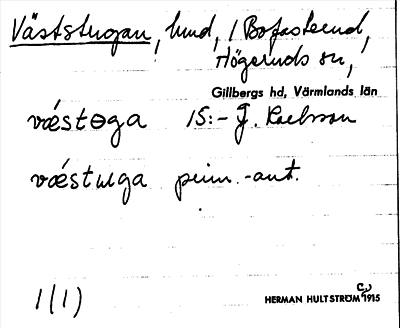 Väststugan, lund, / Bofasterud,
Högeruds sn,
Gillbergs hd, Värmlands län
vǽstɵga 15:- J.
vǽstɯga prim. -ant.
1(1)
HERMAN HULTSTRÖM C. 1915